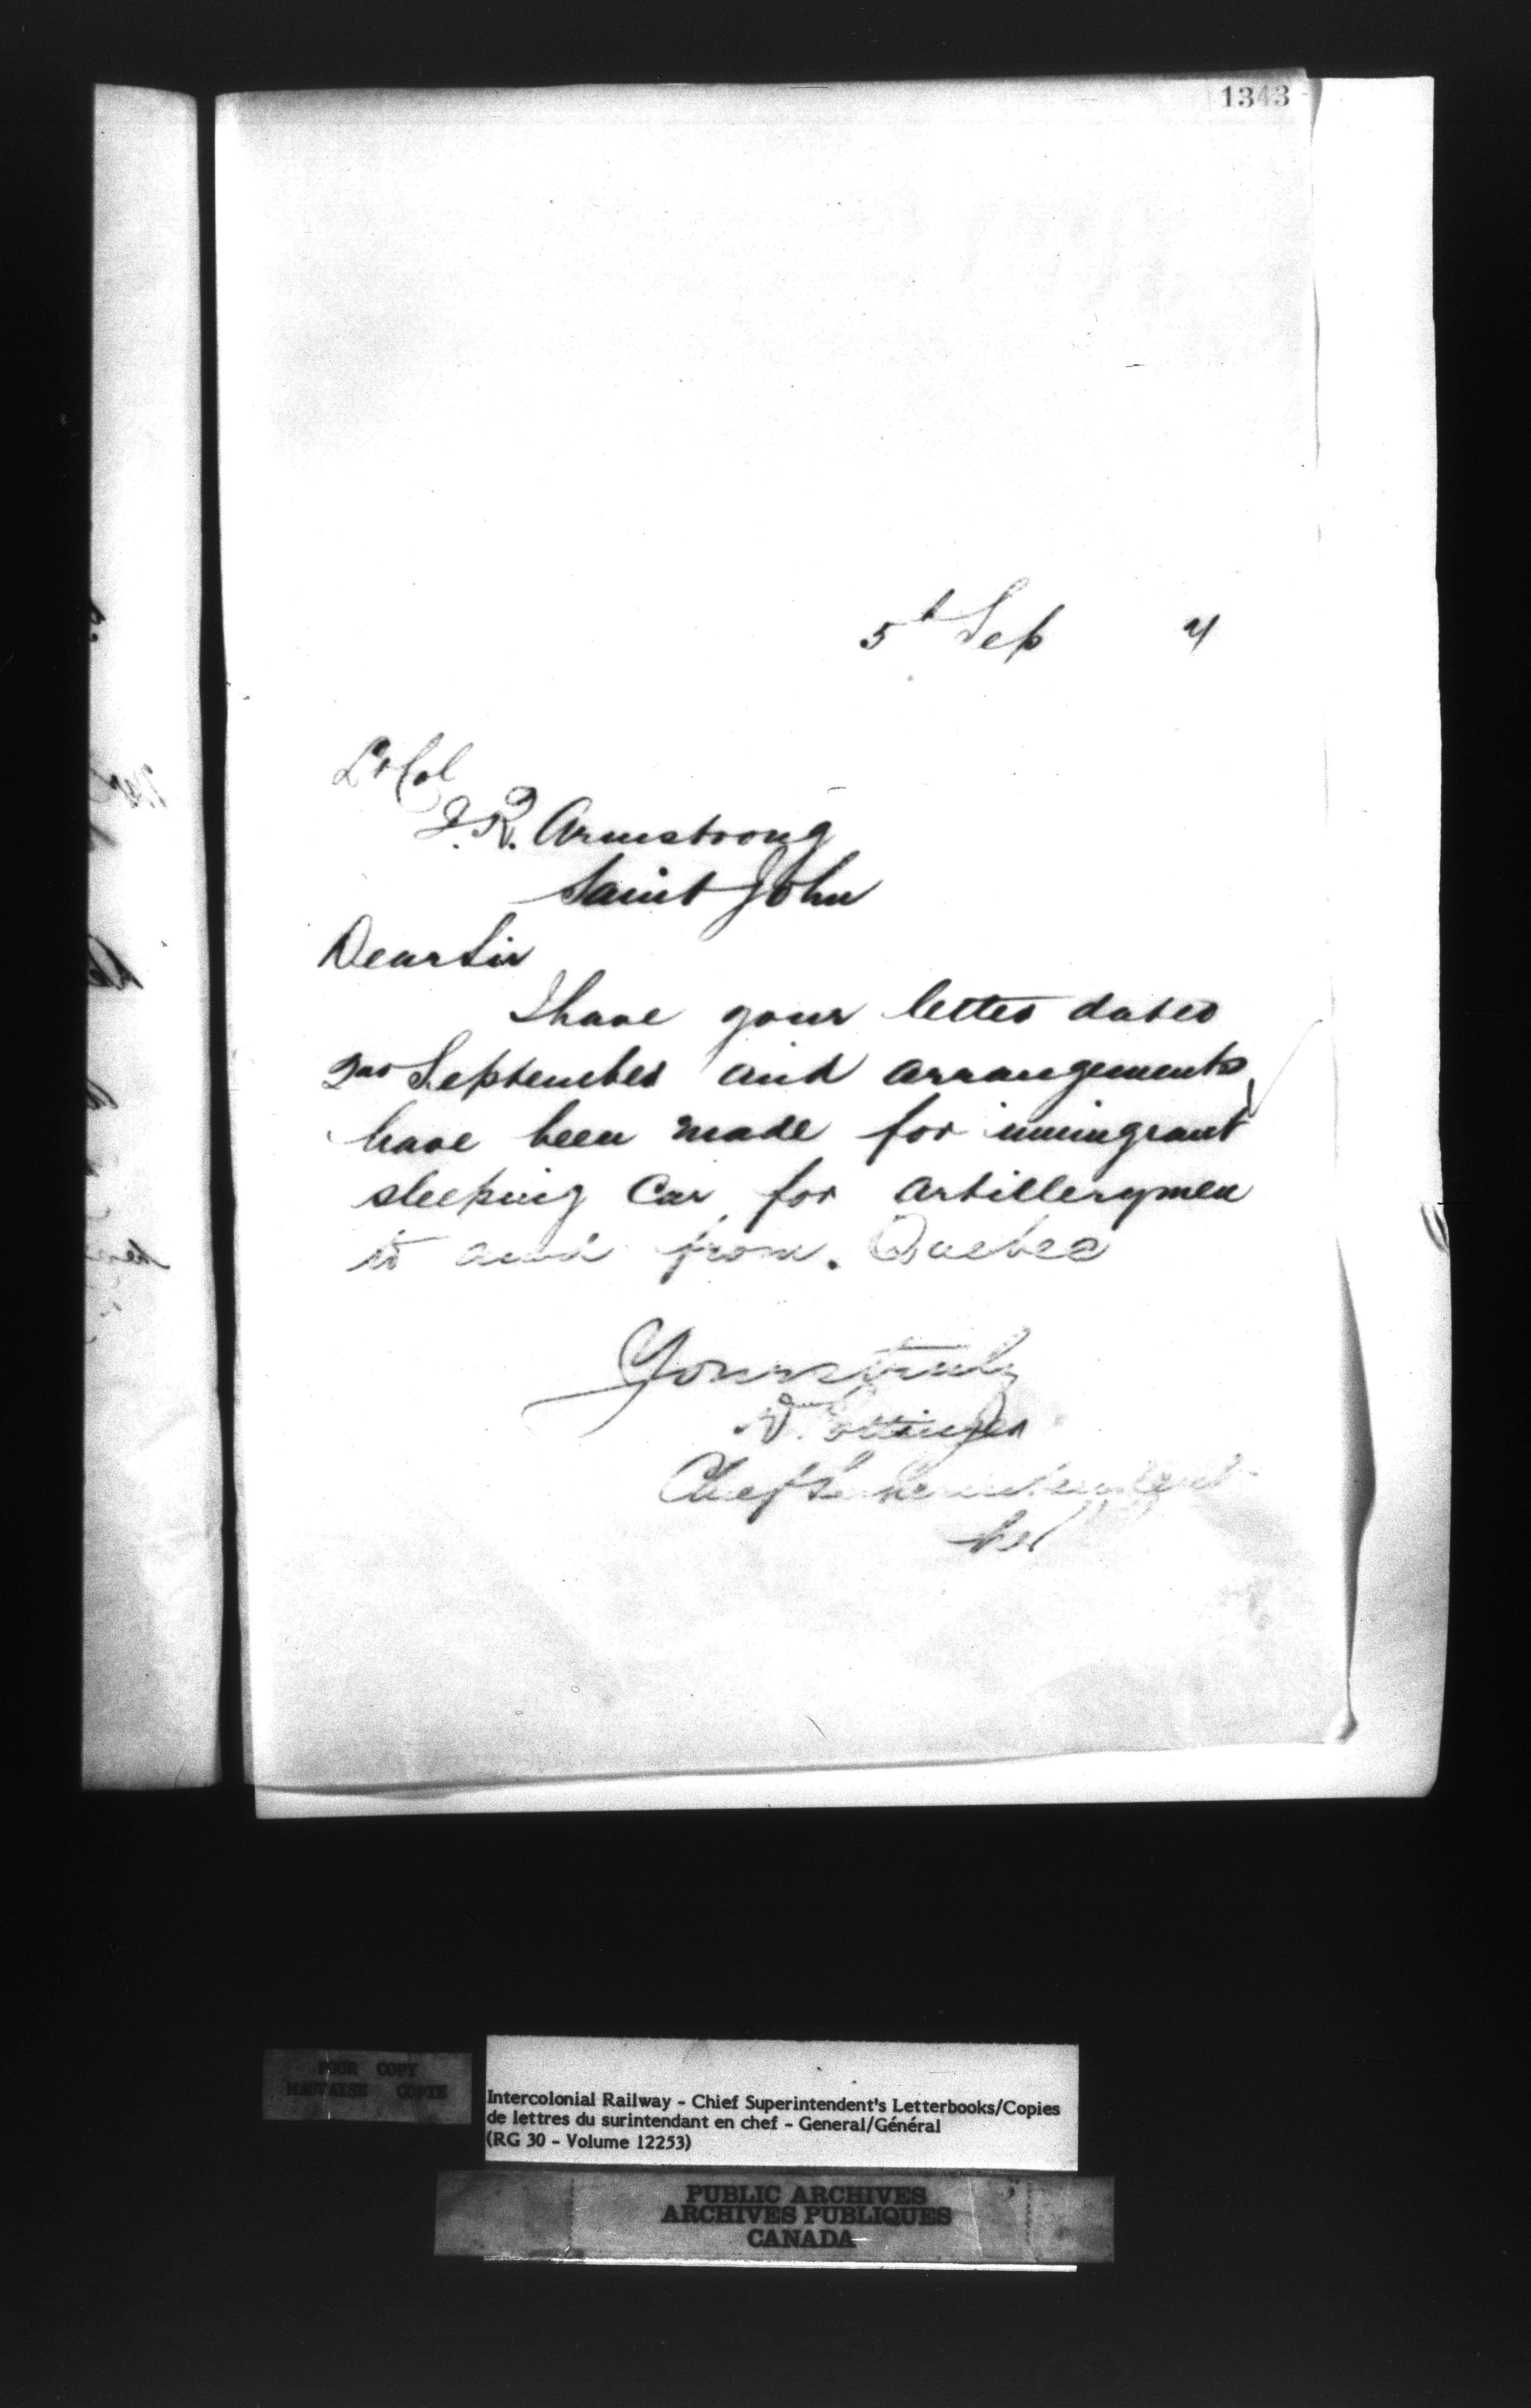 1343
5th Sep 4
Lt Col
J.R. Armstrong
Saint John
Dear Sir
I have your letter dated
2nd September and arrangements
have been made for immigrant
sleeping Car for artillerymen
to and from. Quebec
Yours truly
D. Pottinger
Chief Superintendent
POOR COPY
MAUVAISE COPIE
Intercolonial Railway - Chief Superintendent's Letterbooks/Copies
de lettres du surintendant en chef - General/Général
(RG 30 - Volume 12253)
PUBLIC ARCHIVES
ARCHIVES PUBLIQUES
CANADA